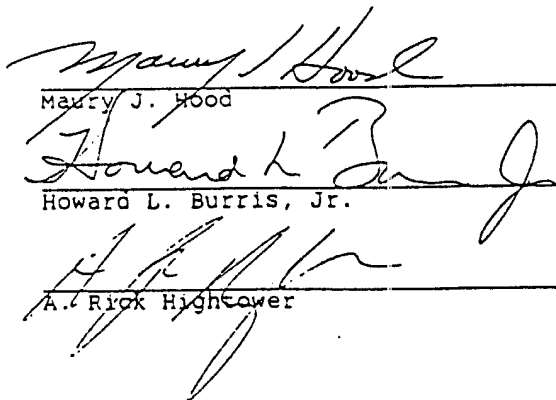 Maury J Hood
Maury J. Hood
Howard L Burris Jr
Howard L. Burris, Jr.
A. Rick Hightower